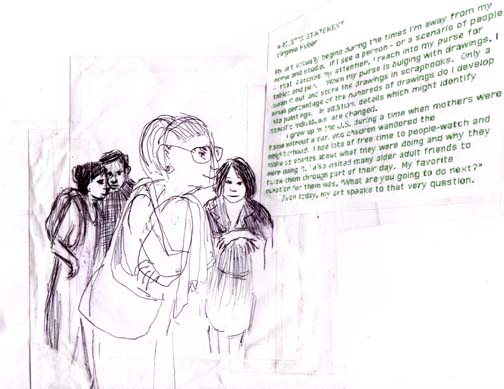 ARTIST'S STATEMENT
Virginia Huber
My art usually begins during the times I'm away from my
home and studio. If I see a person - or a scenario of people
- that catches my attention, I reach into my purse for
tablet and pen. When my purse is bulging with drawings, I
clean it out and store the drawings in scrapbooks. Only a
small percentage of the hundreds of drawings do I develop
into paintings. In addition, details which might identify
specific individuals are changed.
I grew up in the U.S. during a time when mothers were
home without a car, and children wandered the
neighborhood. I had lots of free time to people-watch and
make up stories about what they were doing and why they
were doing it. I also visited many older adult friends to
follow them through part of their day. My favorite
question for them was, "What are you going to do next?"
Even today, my art speaks to that very question.